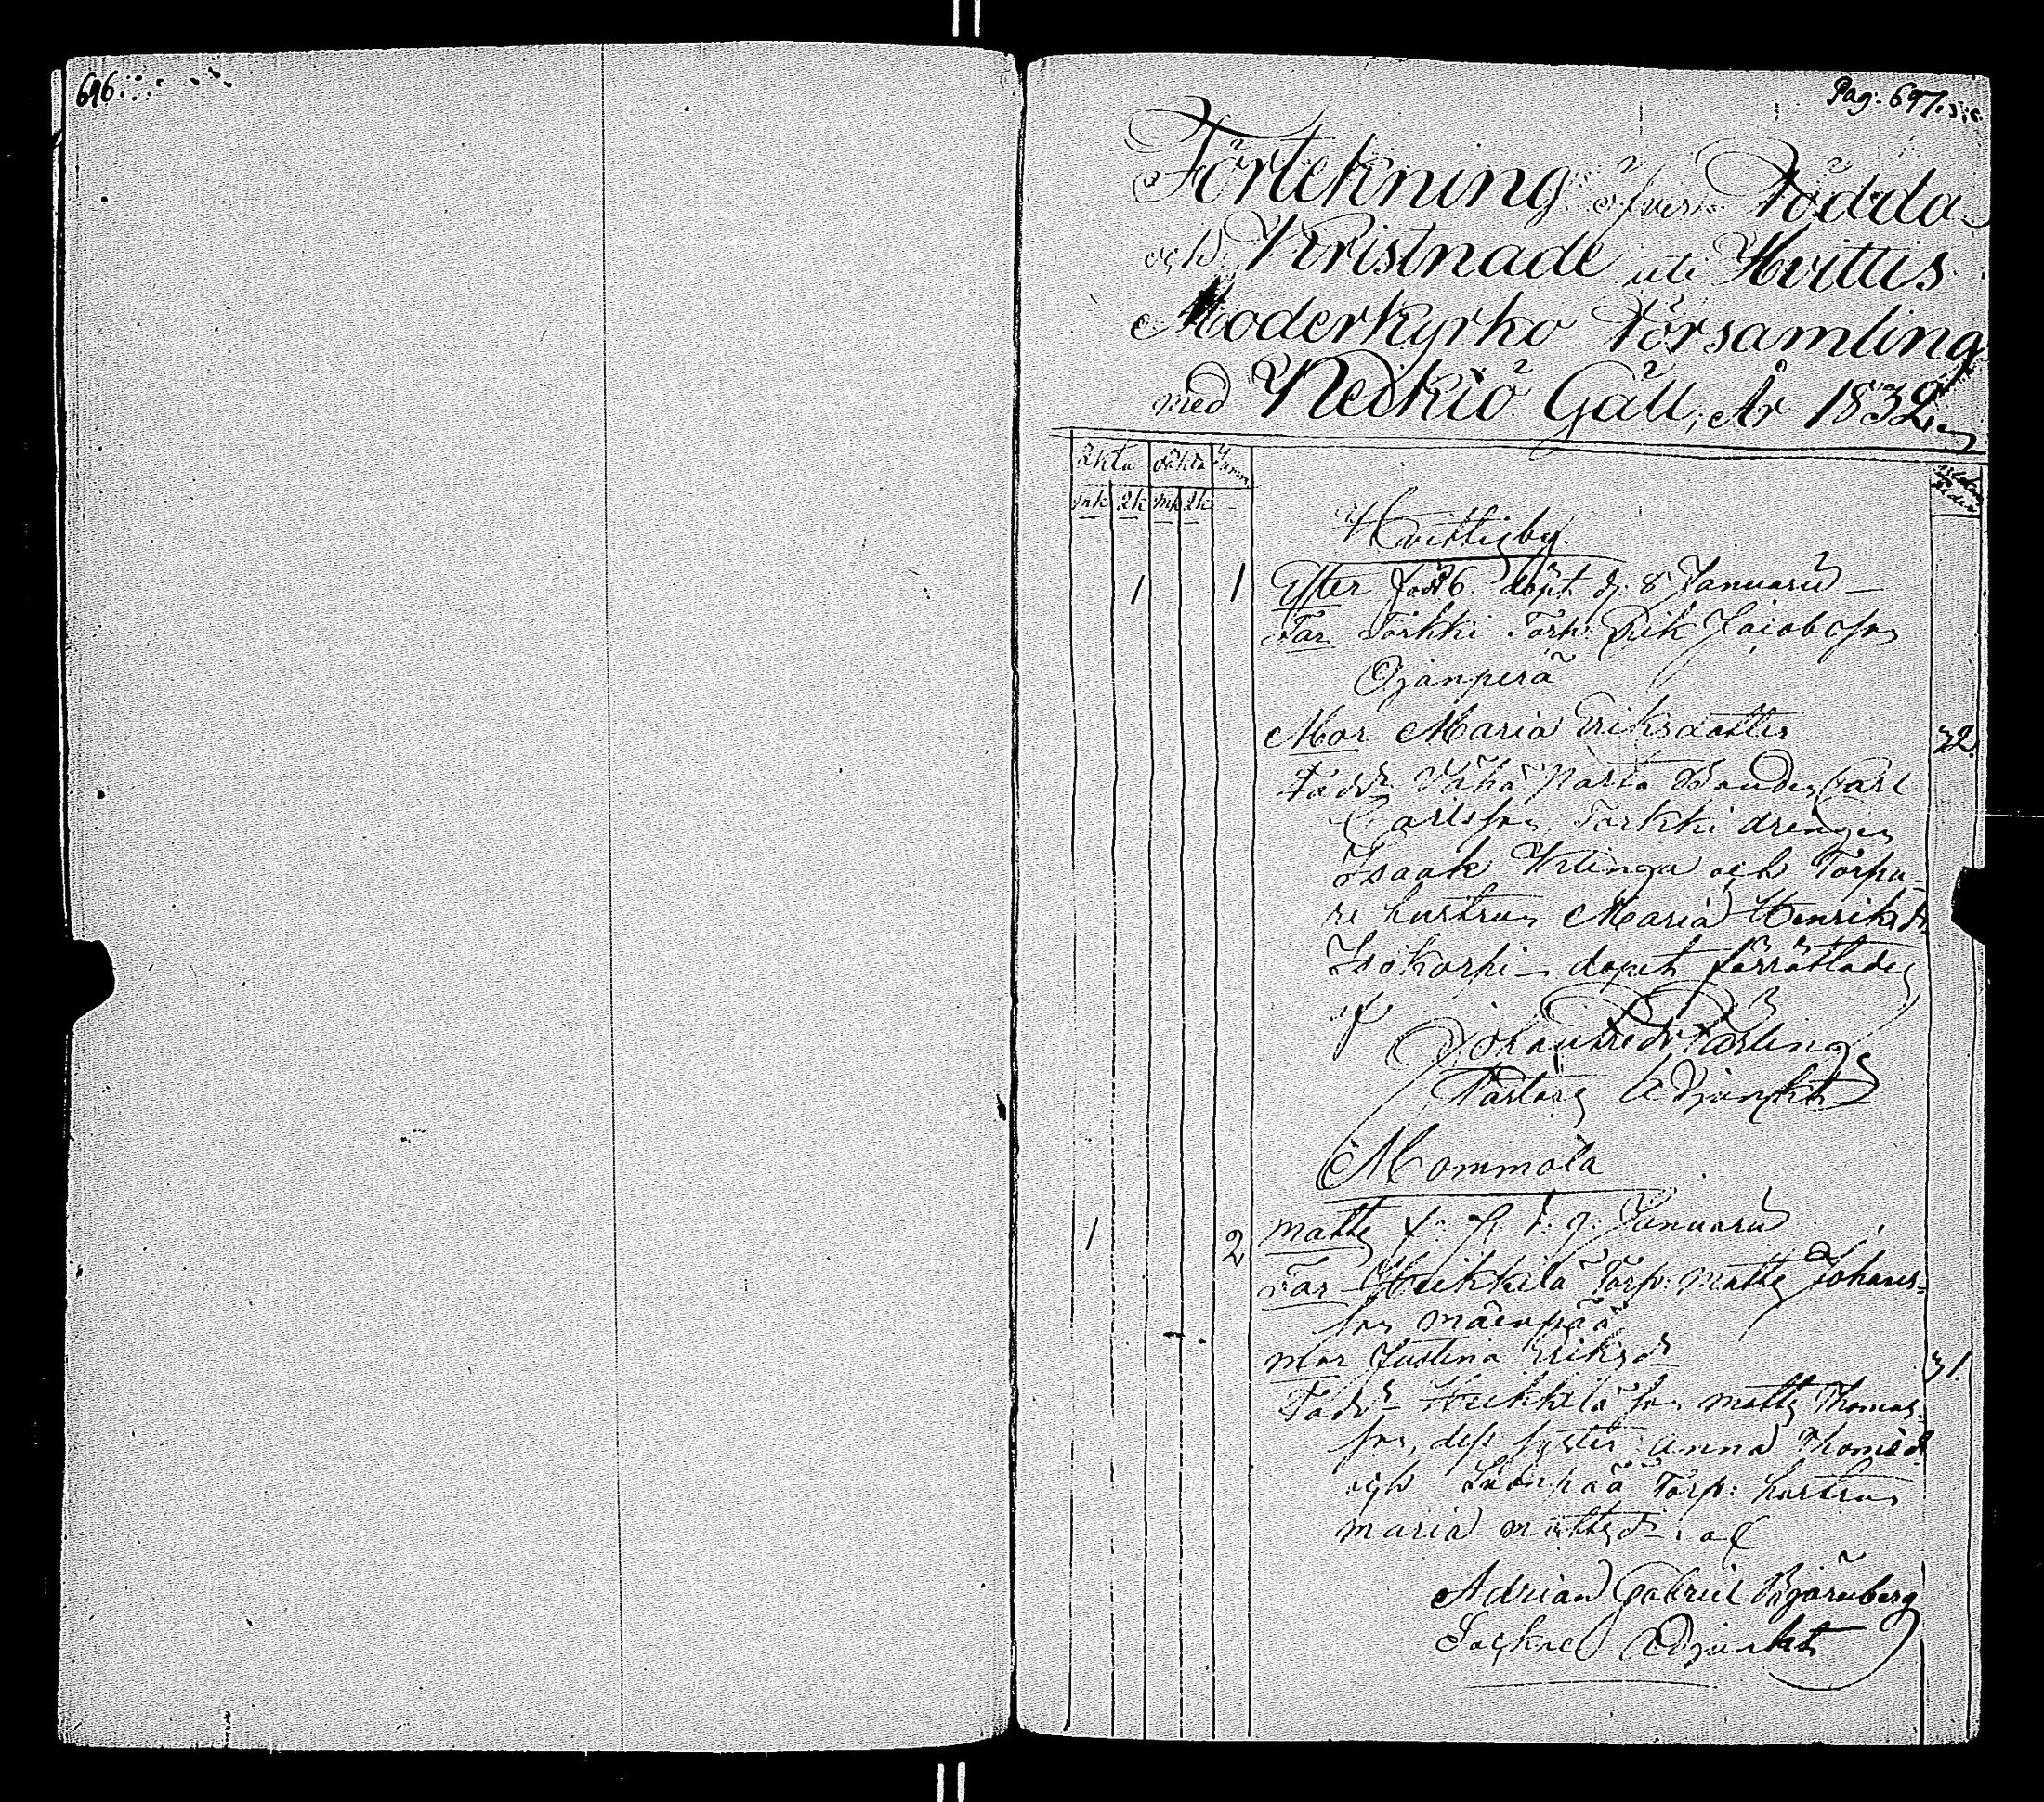 696
Pag. 697
Förtekning öfver Födda
och Kristnade uti Hvittis
Moderkyrko Församling
med Keikiö Gäll, År 1832
äkta oäkta Summ
mk qk mk qk
Hvittisby
1 1 Ester född 6. döpt d. 8 Januarii
Far Torkki Torp. Erik Jacobsson
Ojanperä
Mor Maria Eriksdotter 32
Fadd. Vähä Carl
Carlsson, Torkki drengen
Isaak och Torpa-
re hustrun Maria Henriksdr
Isokorpi dopet förrättades
af
Johan Fredr
Pastors Adjunkt
Mommola
1 2 Matts f. 7. d. 9. Januarii
Far Heikkilä Torp. Matts Johans-
son Mäenpää
Mor Justina Eriksdr 31
Fadd. Heikkilä son Matts Thomas-
son, dess syster Anna Thomasdr
och Torp. hustrun
Maria Mattsdr. af
Adrian Gabriel Björnberg
Sockne Adjunkt